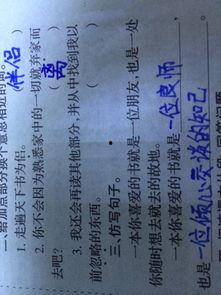 二、给加点部分换个意思相近的词。
1. 走遍天下书为侣。（伴侣）
2. 你不会因为熟悉家中的一切就弃家而
去吧？（离）
3. 我还会再读其他部分，并从中找到我以
前忽略的东西。（ ）
三、仿写句子。
一本你喜爱的书就是一位朋友，也是一处
你随时想去就去的故地。
一本你喜爱的书就是一位良师，
也是一位倾心交谈的知己。